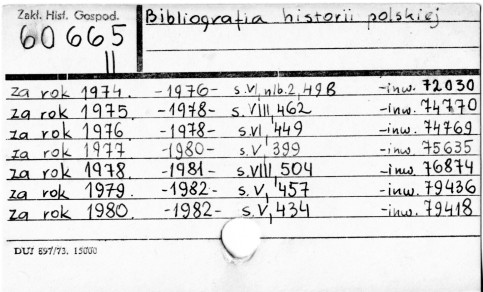 Zakł. Hist. Gospod.
60665
II
Bibliografia historii polskiej
za rok 1974. -1976- s.VI, nlb.2, 498 -inw. 72030
za rok 1975. -1978- s.VIII, 462 -inw. 74770
za rok 1976 -1978- s.VI, 449 -inw. 74769
za rok 1977 -1980- s.V, 399 -inw. 75635
za rok 1978. -1981- s.VIII, 504 -inw. 76874
za rok 1979. -1982- s.V, 457 -inw. 79436
za rok 1980. -1982- s.V, 434 -inw. 79418
DUJ 897/73. 15000